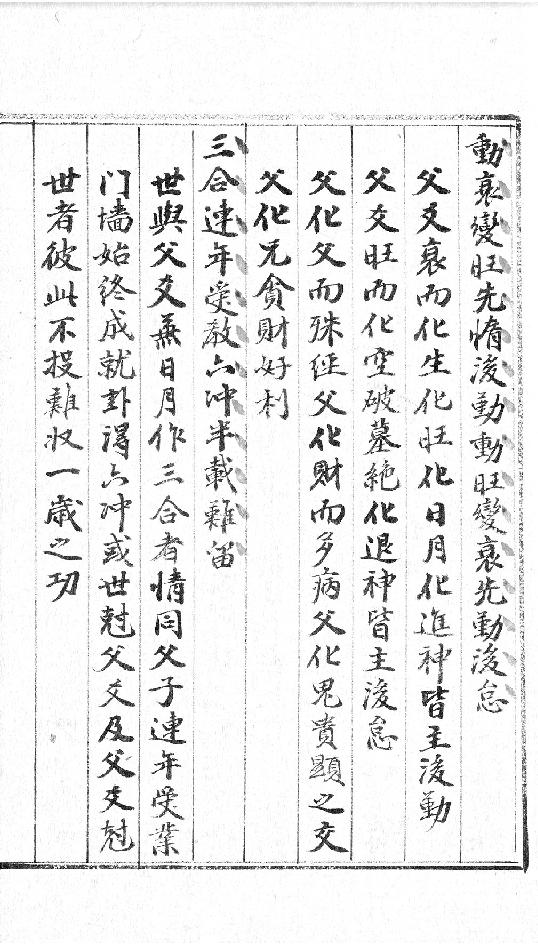 動衰變旺先惰後勤動旺變衰先勤後怠
父爻衰而化生化旺化日月化進神皆主後勤
父爻旺而化空破墓絕化退神皆主後怠
父化父而殊經父化財而多病父化鬼貴顯之交
父化兄貪財好利
三合連年受教六冲半載難留
世與父爻無日月作三合者情同父子連年受業
门墻始終成就卦得六冲或世尅父爻及父爻尅
世者彼此不投難收一歲之功